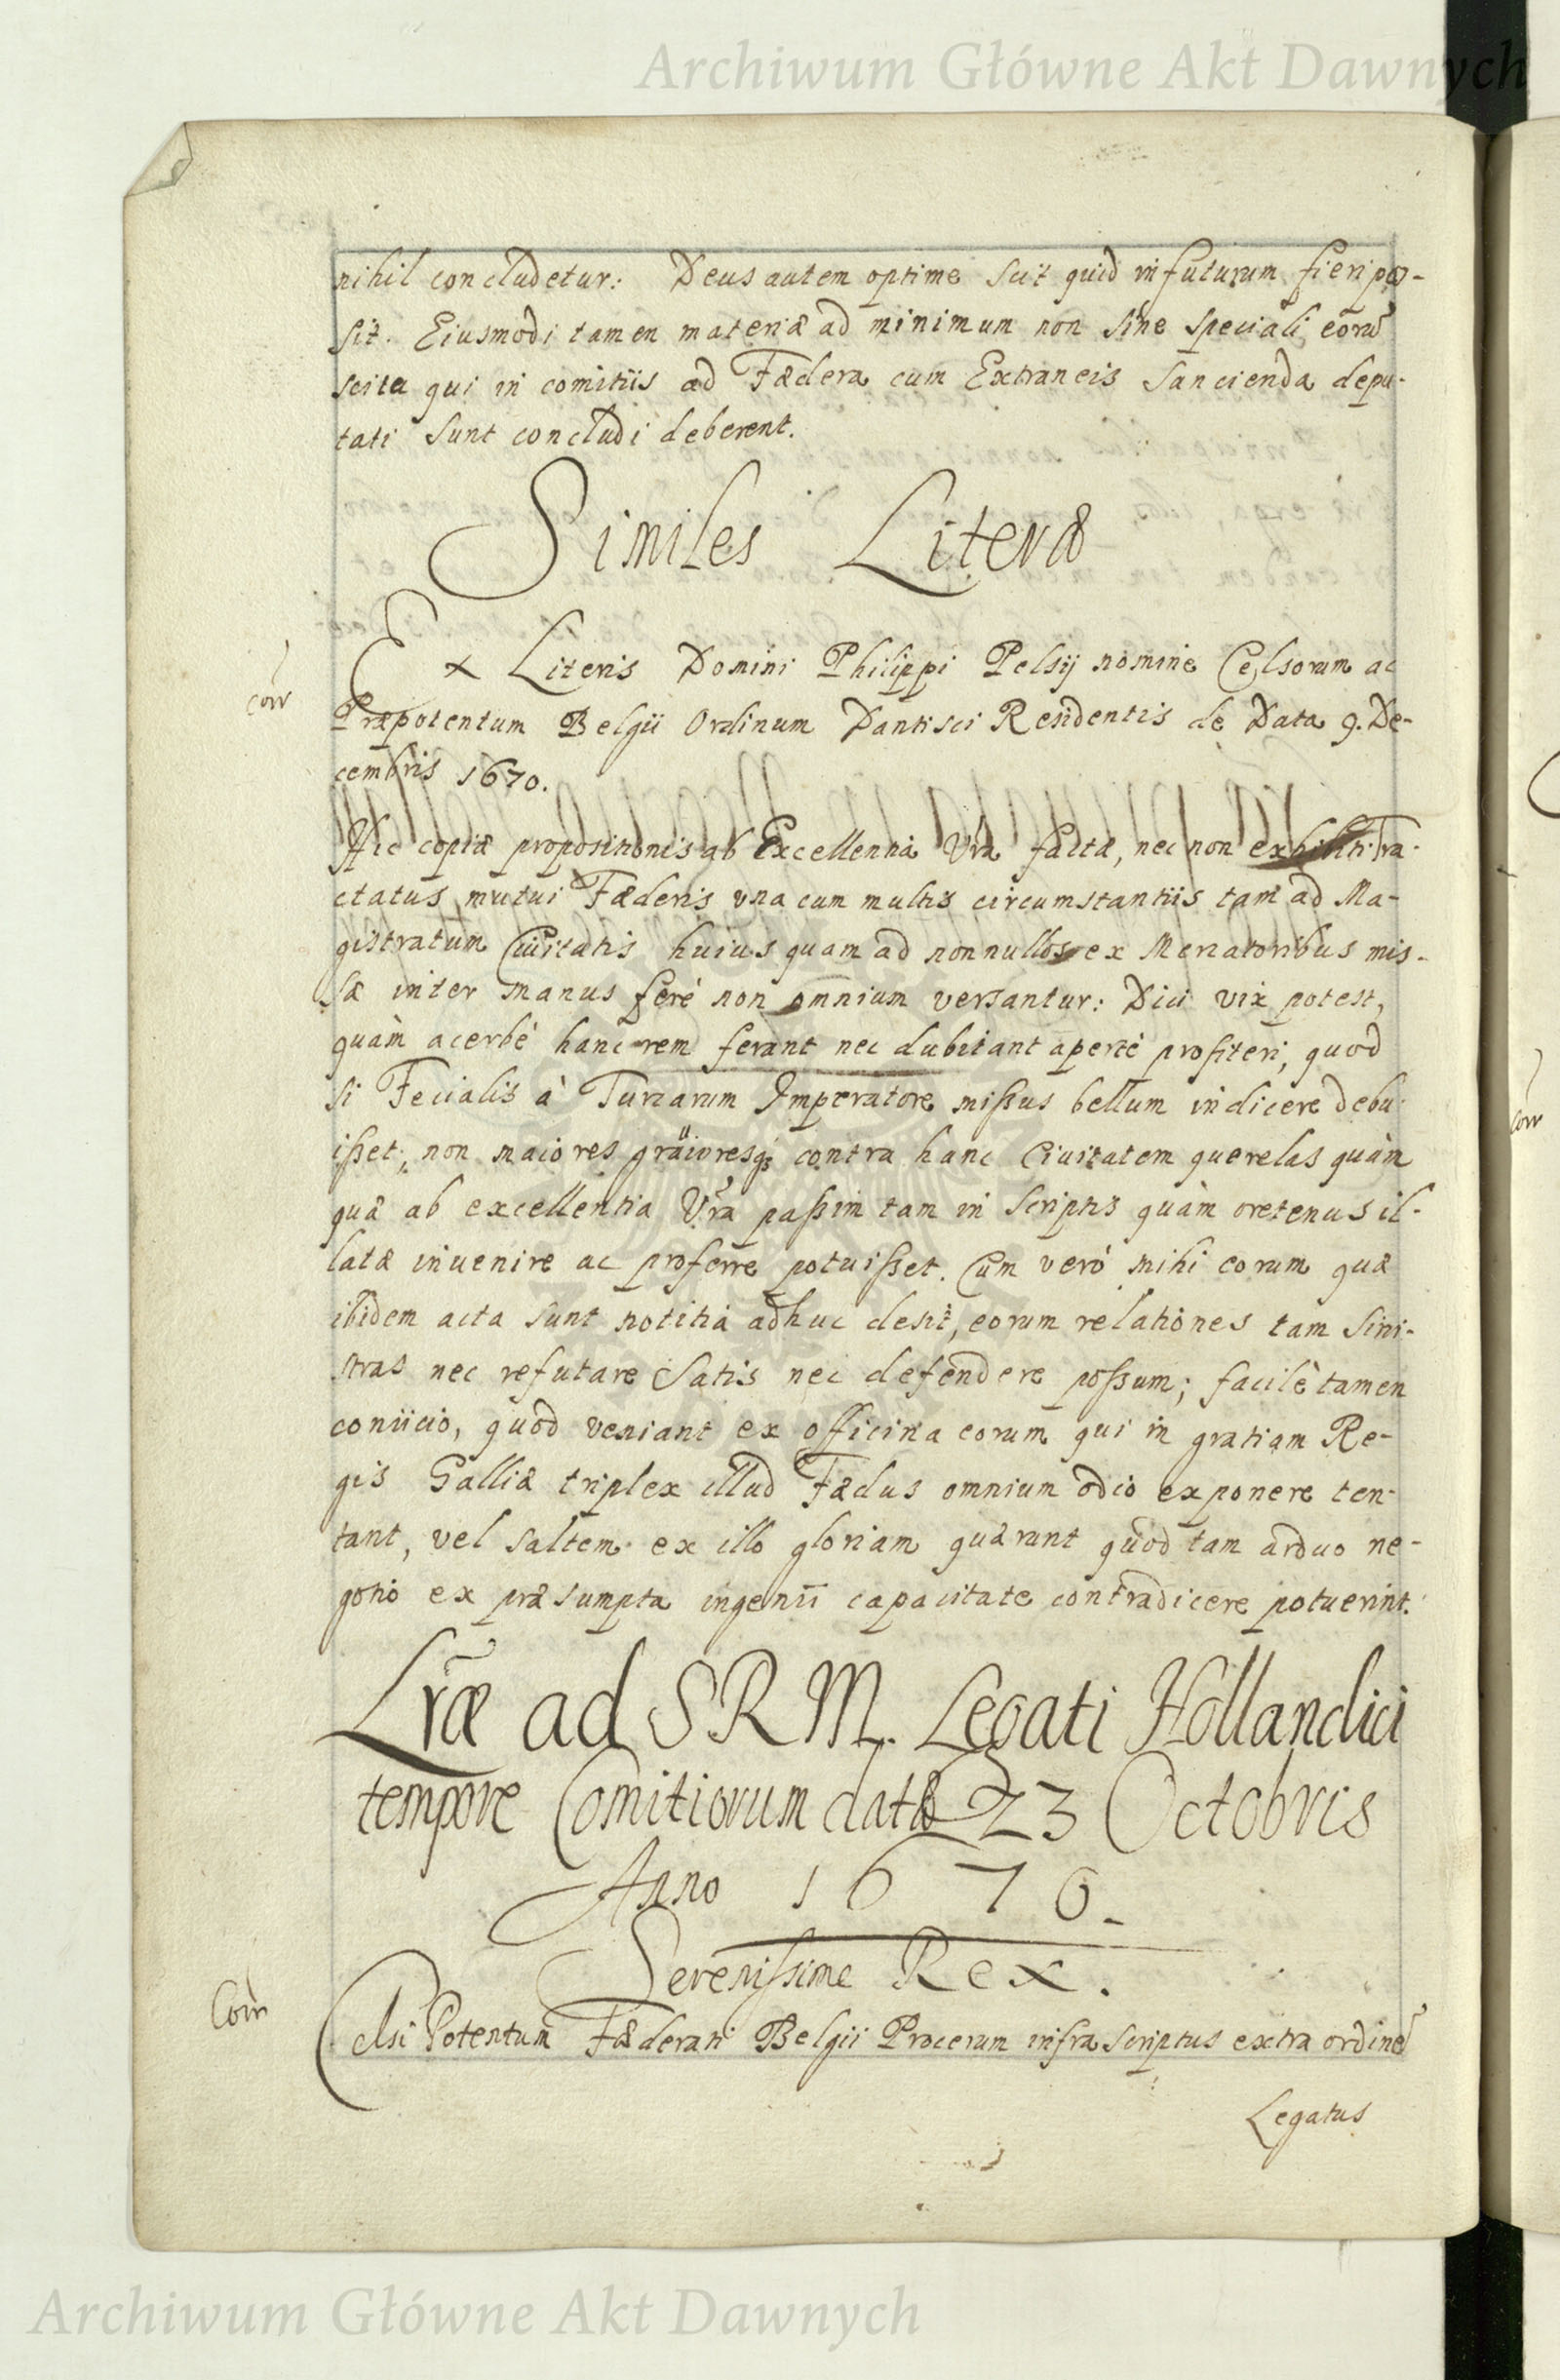 Archiwum Główne Akt Dawnych
nihil concludetur: Deus autem optime scit quid in futurum fieri pos-
sit. Eiusmodi tamen materiæ ad minimum non sine speciali eorũ
scitu qui in comitiis ad Fædera cum Extraneis sancienda depu-
tati sunt concludi deberent.
Similes Literæ
Ex Literis Domini Philippi Pelsij nomine Celsorum ac
corr
Præpotentum Belgii Ordinum Dantisci Residentis de Data 9. De-
cembris 1670.
Hic copiæ propositionis ab Excellentia Vrã factæ, nec non exhibiti Tra-
ctatus mutui Fæderis vna cum multis circumstantiis tam ad Ma-
gistratum Ciuitatis huius quam ad nonnullos ex Mercatoribus mis-
sæ inter manus ferè non omnium versantur: Dici vix potest,
quàm acerbè hanc rem ferant nec dubitant apertè profiteri, quod
si Fecialis à Turcarum Imperatore missus bellum indicere debu-
isset, non maiores grauioresq; contra hanc Ciuitatem querelas quàm
quæ ab excellentia Vrã passim tam in scriptis quàm oretenus il-
latæ inuenire ac proferre potuisset. Cum verò mihi eorum quæ
ibidem acta sunt notitia adhuc desit, eorum relationes tam sini-
stras nec refutare satis nec defendere possum; facilè tamen
coniicio, quod veniant ex officina eorum qui in gratiam Re-
gis Galliæ triplex illud Fædus omnium odio exponere ten-
tant, vel saltem ex illo gloriam quærunt quod tam arduo ne-
gotio ex præsumpta ingenii capacitate contradicere potuerint.
Lrãe ad SRM. Legati Hollandici
tempore Comitiorum datæ 23 Octobris
Anno 1670.
Serenissime Rex.
Corr
Celsi Potentum Fæderati Belgii Procerum infra scriptus extra ordinẽ
Legatus
Archiwum Główne Akt Dawnych